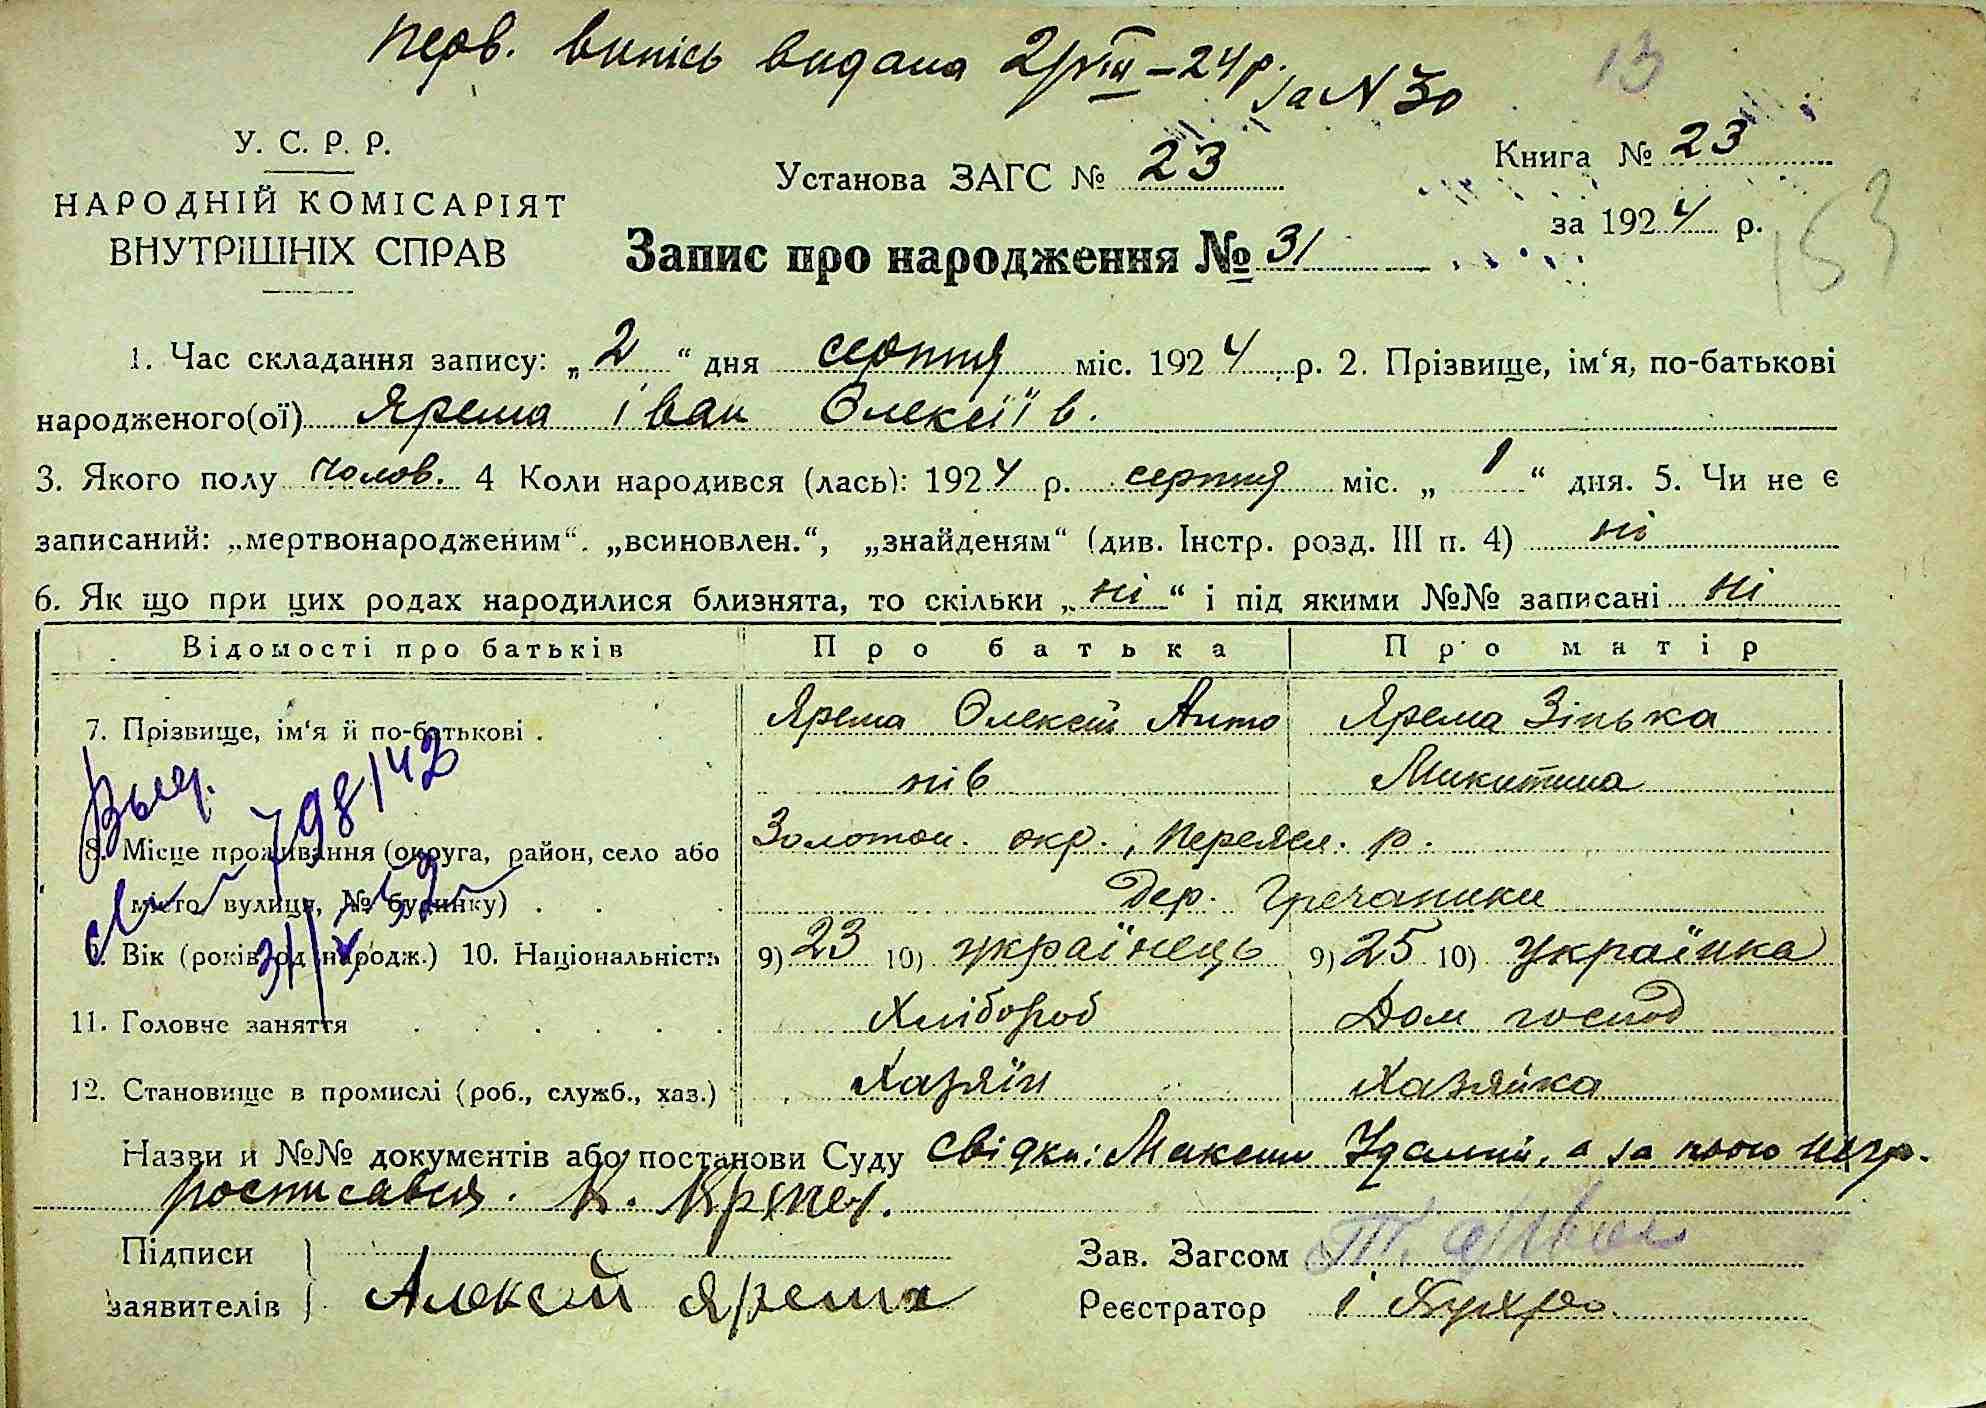 перв. випісь видана 2/VIII – 24 р.
за N 30
13
У. С. Р. Р.
НАРОДНІЙ КОМІСАРІЯТ
ВНУТРІШНІХ СПРАВ
Установа ЗАГС № 23
Книга № 23
за 1924 р.
153
Запис про народження № 31
1. Час складання запису: „2“ дня серпня міс. 1924 р. 2. Прізвище, ім‘я, по-батькові
народженого(ої) Ярема Іван Олексіїв.
3. Якого полу чолов. 4 Коли народився (лась): 1924 р. серпня міс. „1“ дня. 5. Чи не є
записаний: „мертвонародженим“. „всиновлен.“, „знайденям“ (див. Інстр. розд. III п. 4) ні
6. Як що при цих родах народилися близнята, то скільки „ні“ і під якими №№ записані ні
Відомості про батьків Про батька Про матір
7. Прізвище, ім‘я й по-батькові . Ярема Олексій Анто Ярема Зінька
нів Микитина
8. Місце проживання (округа, район, село або Золотон. окр., Переясл. р.
місто вулиця, № будинку) . дер. Гречаники
9. Вік (років од народж.) 10. Національність 9) 23 10) українець 9) 25 10) українка
11. Головне заняття Хлібороб Дом господ
12. Становище в промислі (роб., служб., хаз.) Хазяїн Хазяйка
798/42
31/X 42
Назви й №№ документів або постанови Суду свідки: Максим Удалий, а за нього негр.
росписався.
Підписи
заявителів Алексей Ярема
Зав. Загсом
Реєстратор